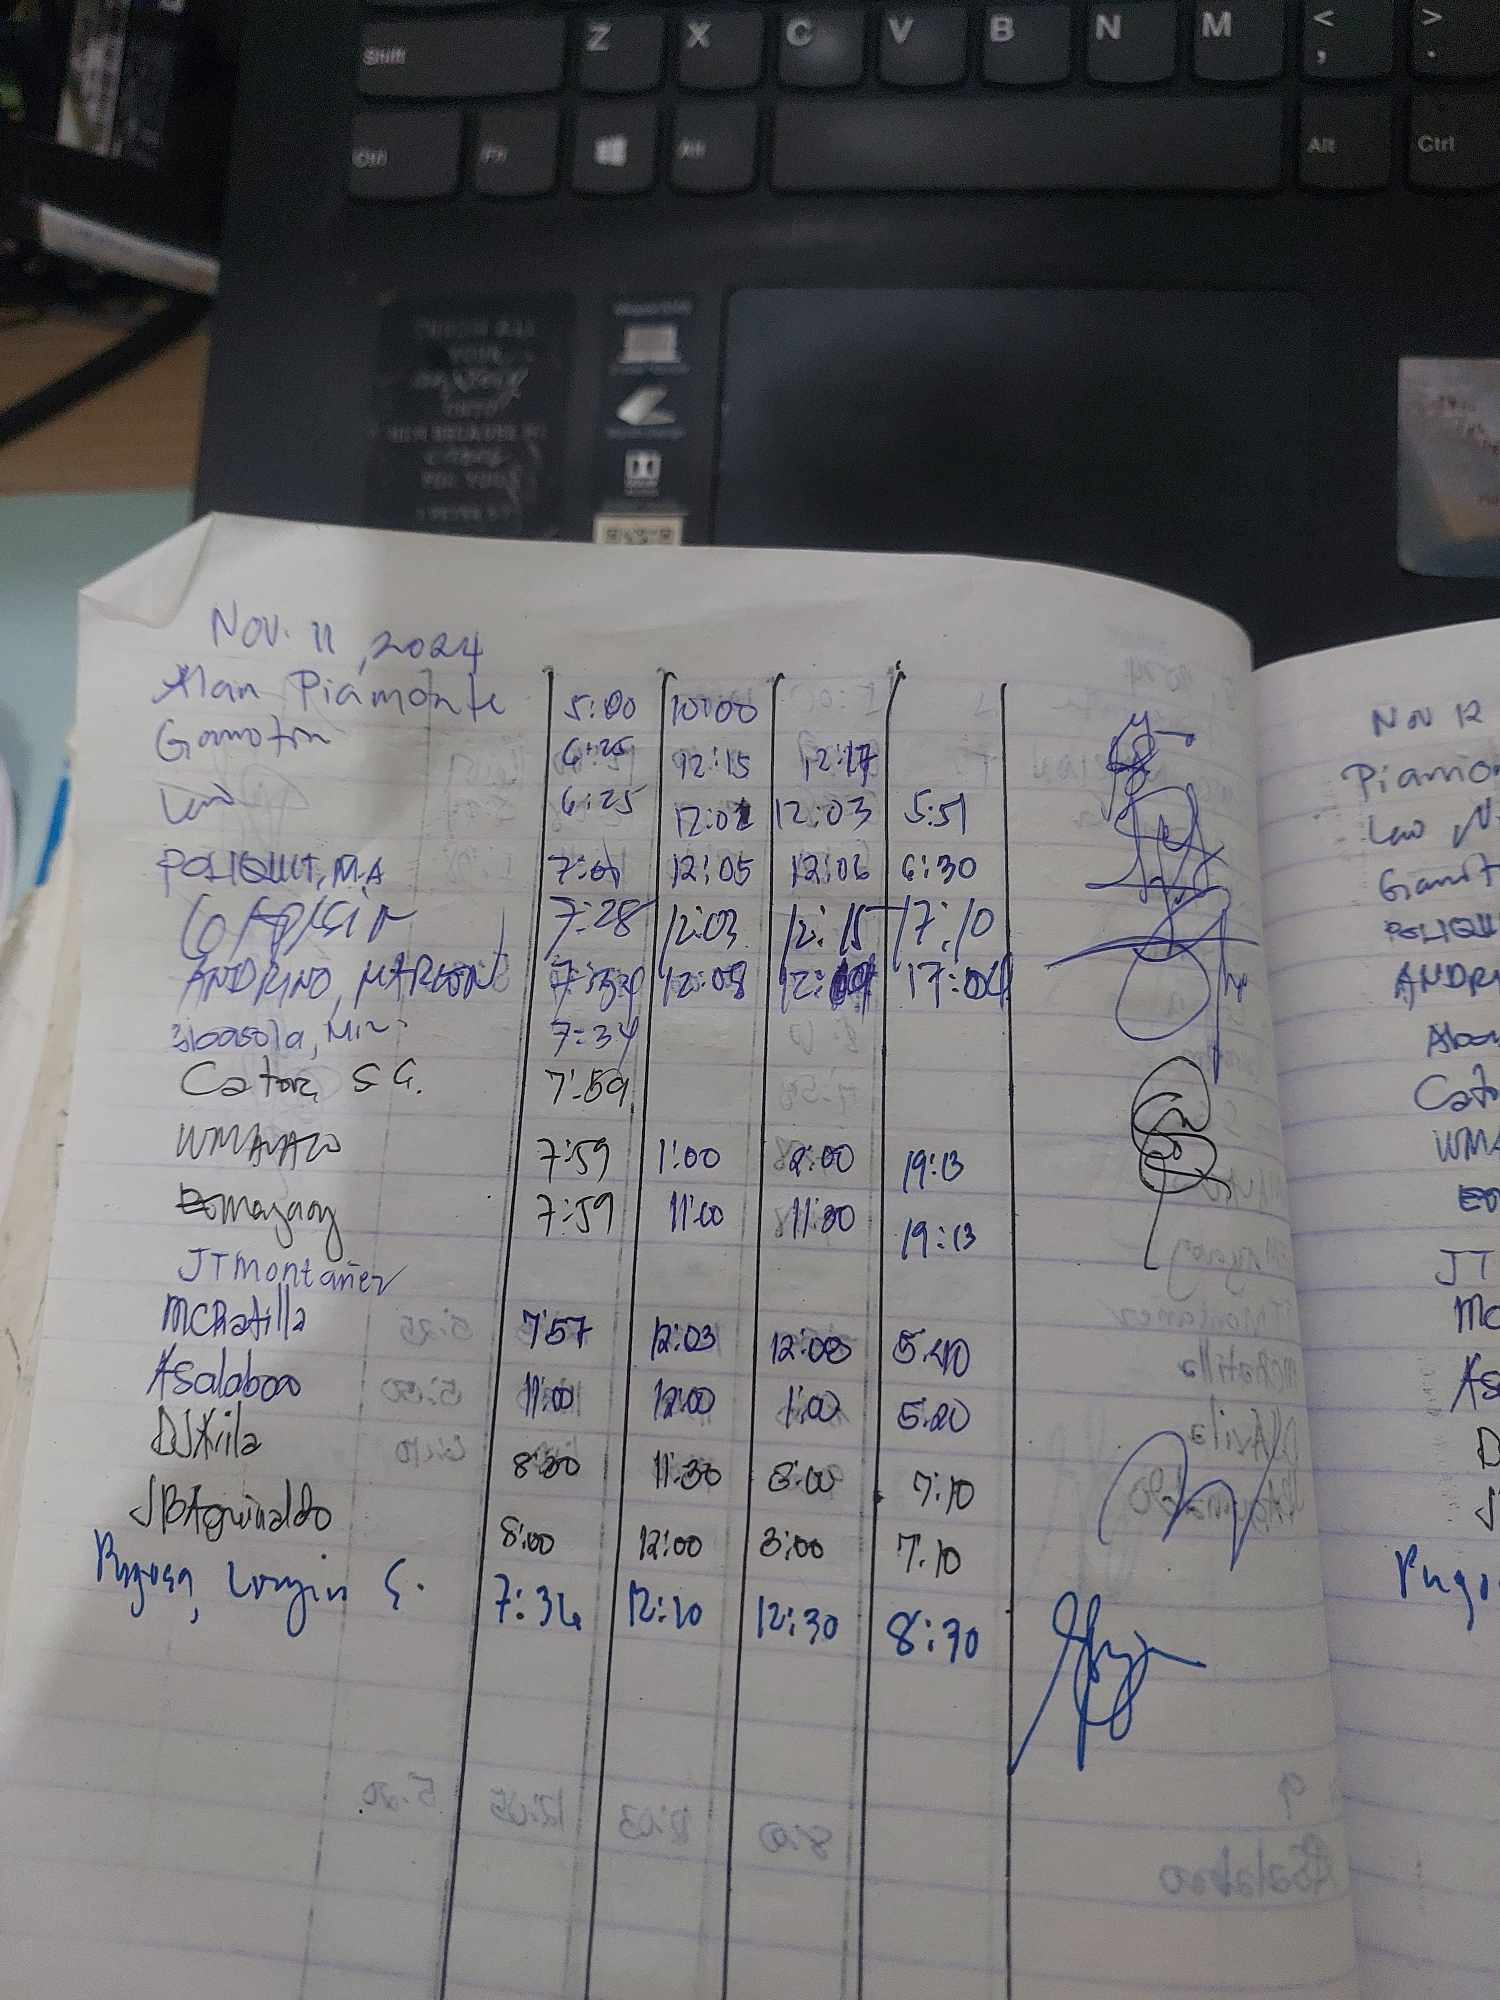 Shift Z X C V B N M < ,  > .
Ctrl Fn Alt Alt Ctrl
Nov. 11, 2024
Alan Piamonte 5:00 10:00
Gamotin 6:25 12:15 12:17
Lao 6:25 12:02 12:03 5:51
POLIQUIT, M.A 7:01 12:05 12:06 6:30
7:28 12:03 12:15 17:10
ANDRINO, MARLON 7:34 12:08 17:04
7:34
Cator, S G. 7:59
WMAVAZO 7:59 1:00 2:00 19:13
7:59 11:00 11:30 19:13
JTMontañez
MCRatilla 7:57 12:03 12:08 5:40
ASalabao 11:00 12:00 1:00 5:20
DJAvila 8:30 11:30 7:10
JBAguinaldo 8:00 12:00 3:00 7:10
7:36 12:10 12:30 8:30
Nov 12
Piamo
Lao
Gamot
POLIQUI
ANDR
Cato
WM
JT
MC
AS
D
J